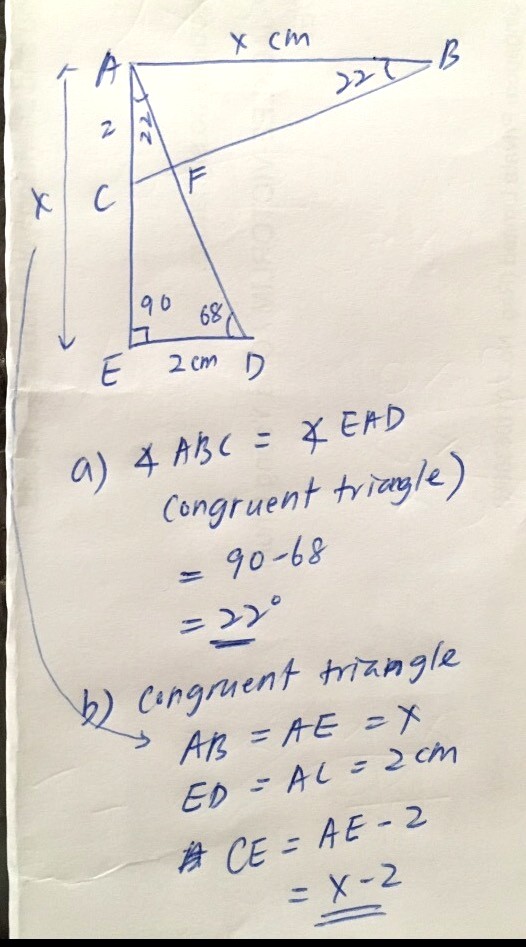 x cm
A
B
22
2
22
F
x
C
90
68
E
2 cm
D
a) ∡ ABC = ∡ EAD
congruent triangle)
= 90-68
= 22°
b) congruent triangle
AB = AE = x
ED = AC = 2 cm
CE = AE - 2
= x - 2